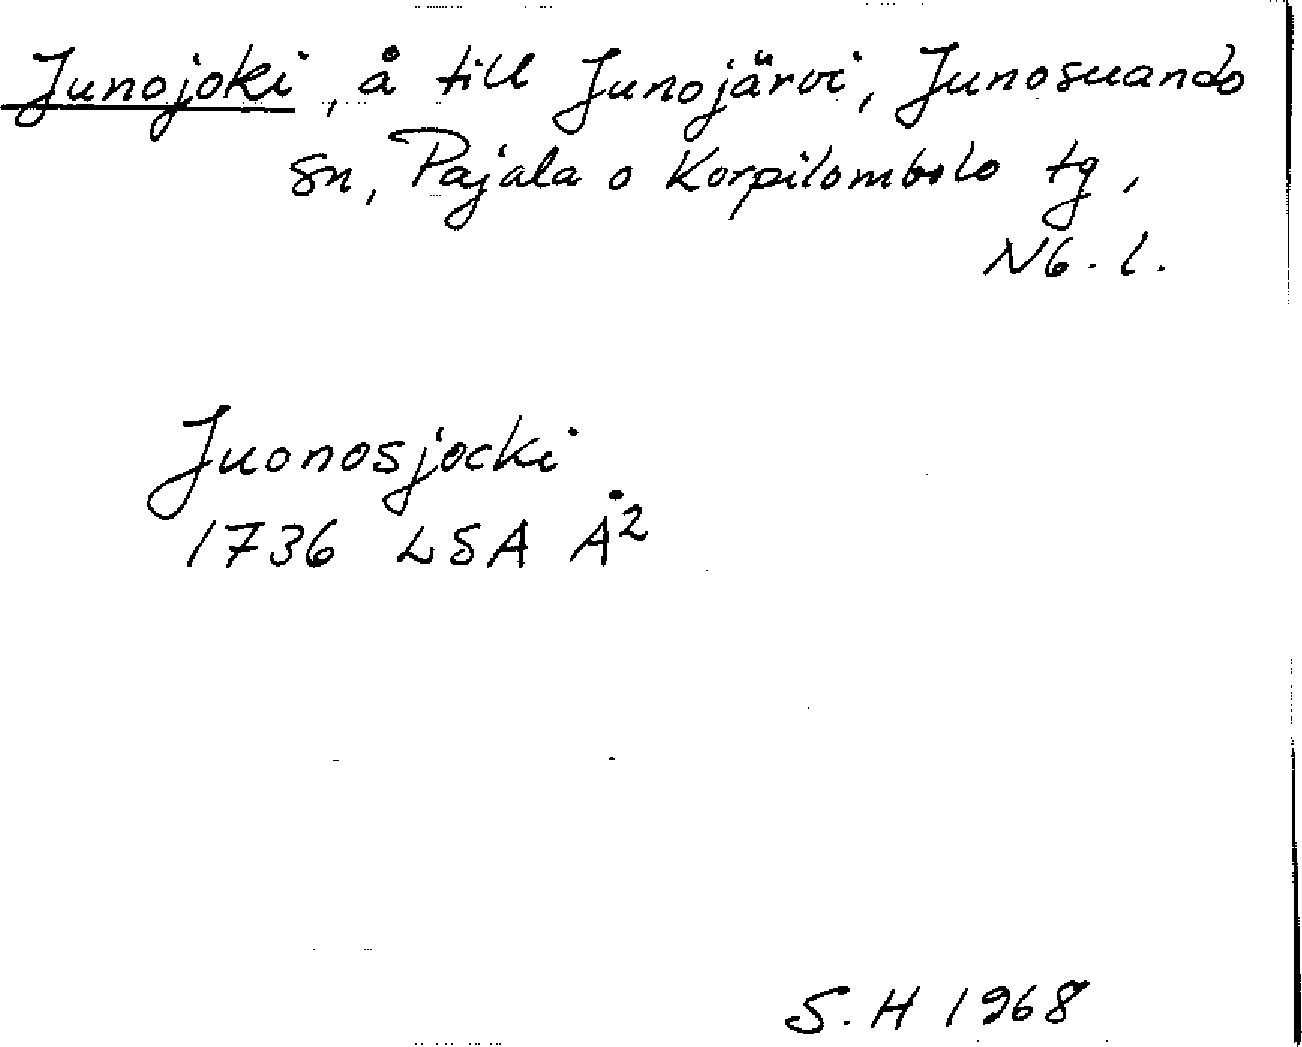 Junojoki, å till Junojärvi, Junosuando
sn, Pajala o Korpilombolo tg,
Nb. l.
Juonosjocki
1736 LSA Å2
S. H 1968